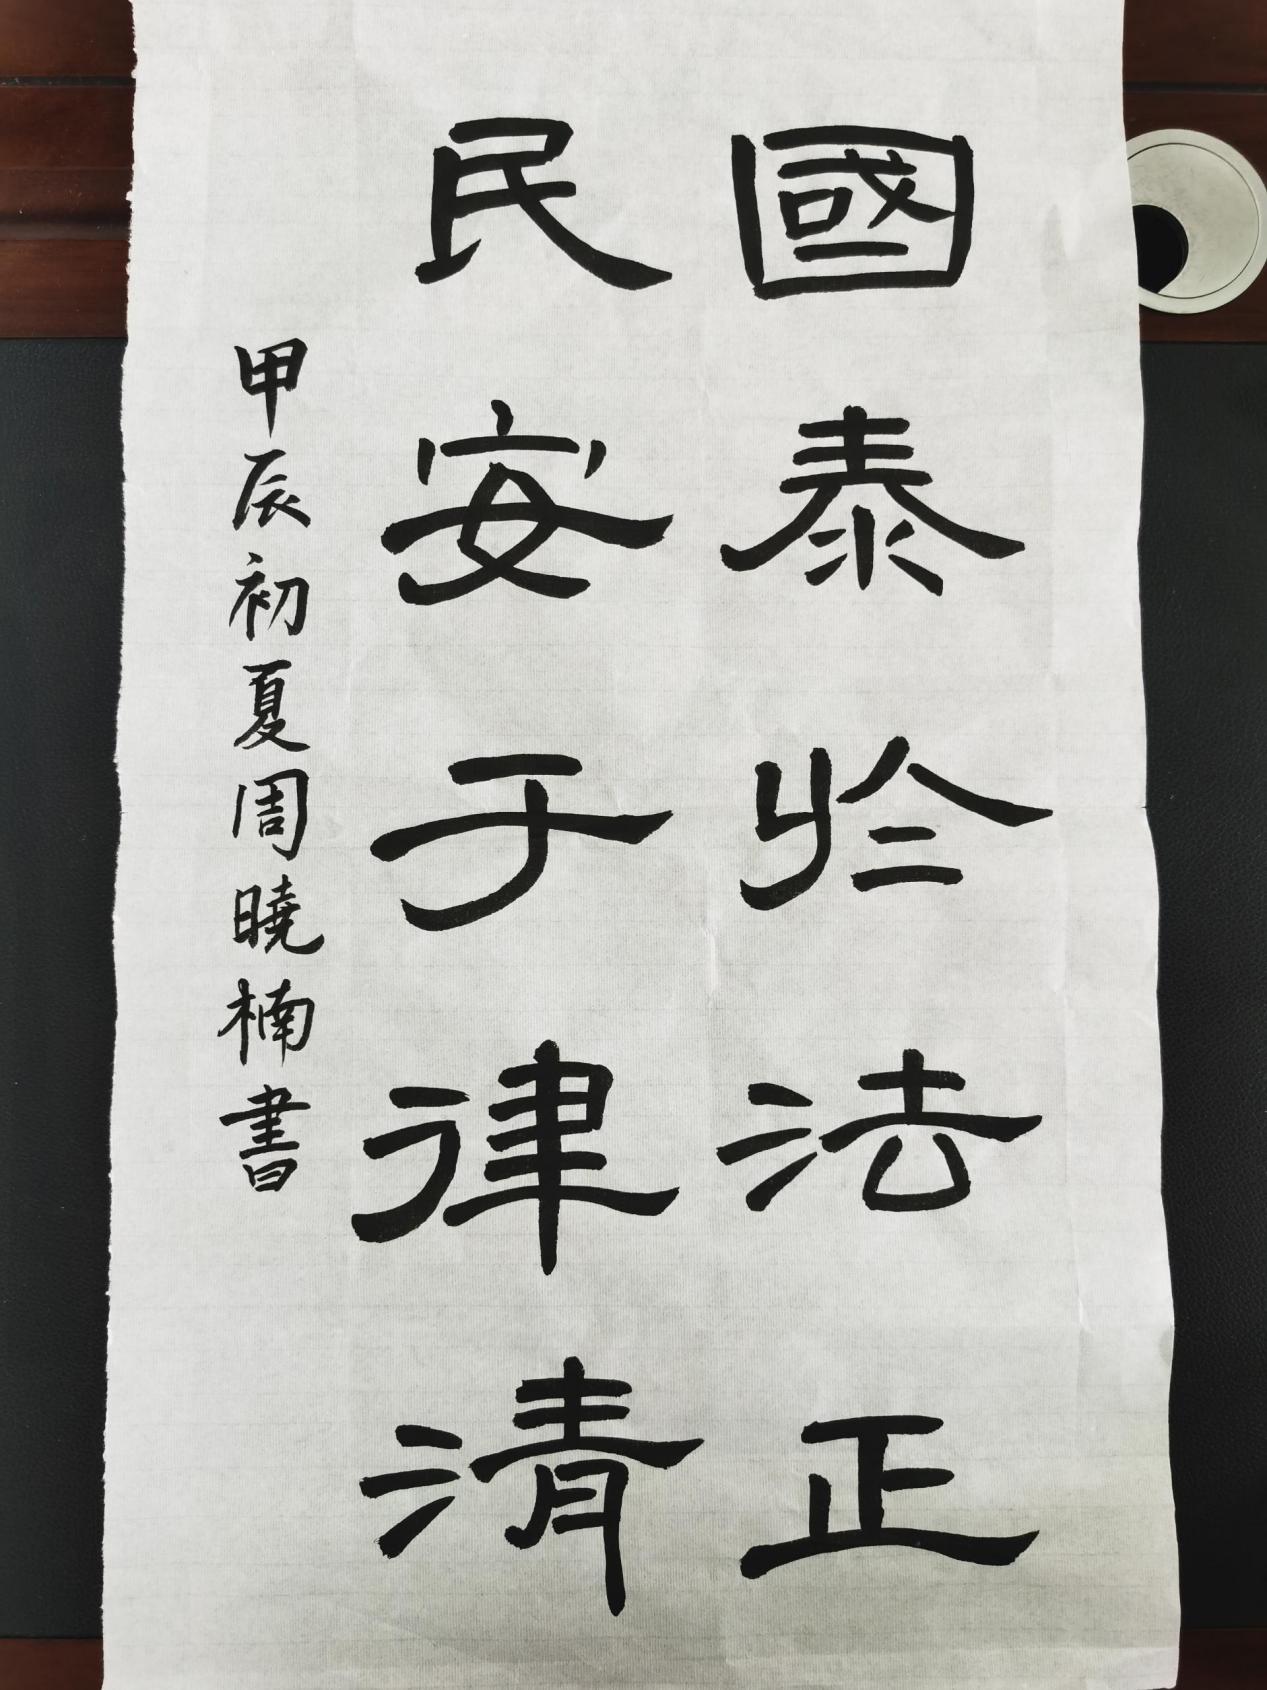 國泰於法正
民安于律清
甲辰初夏周曉楠書